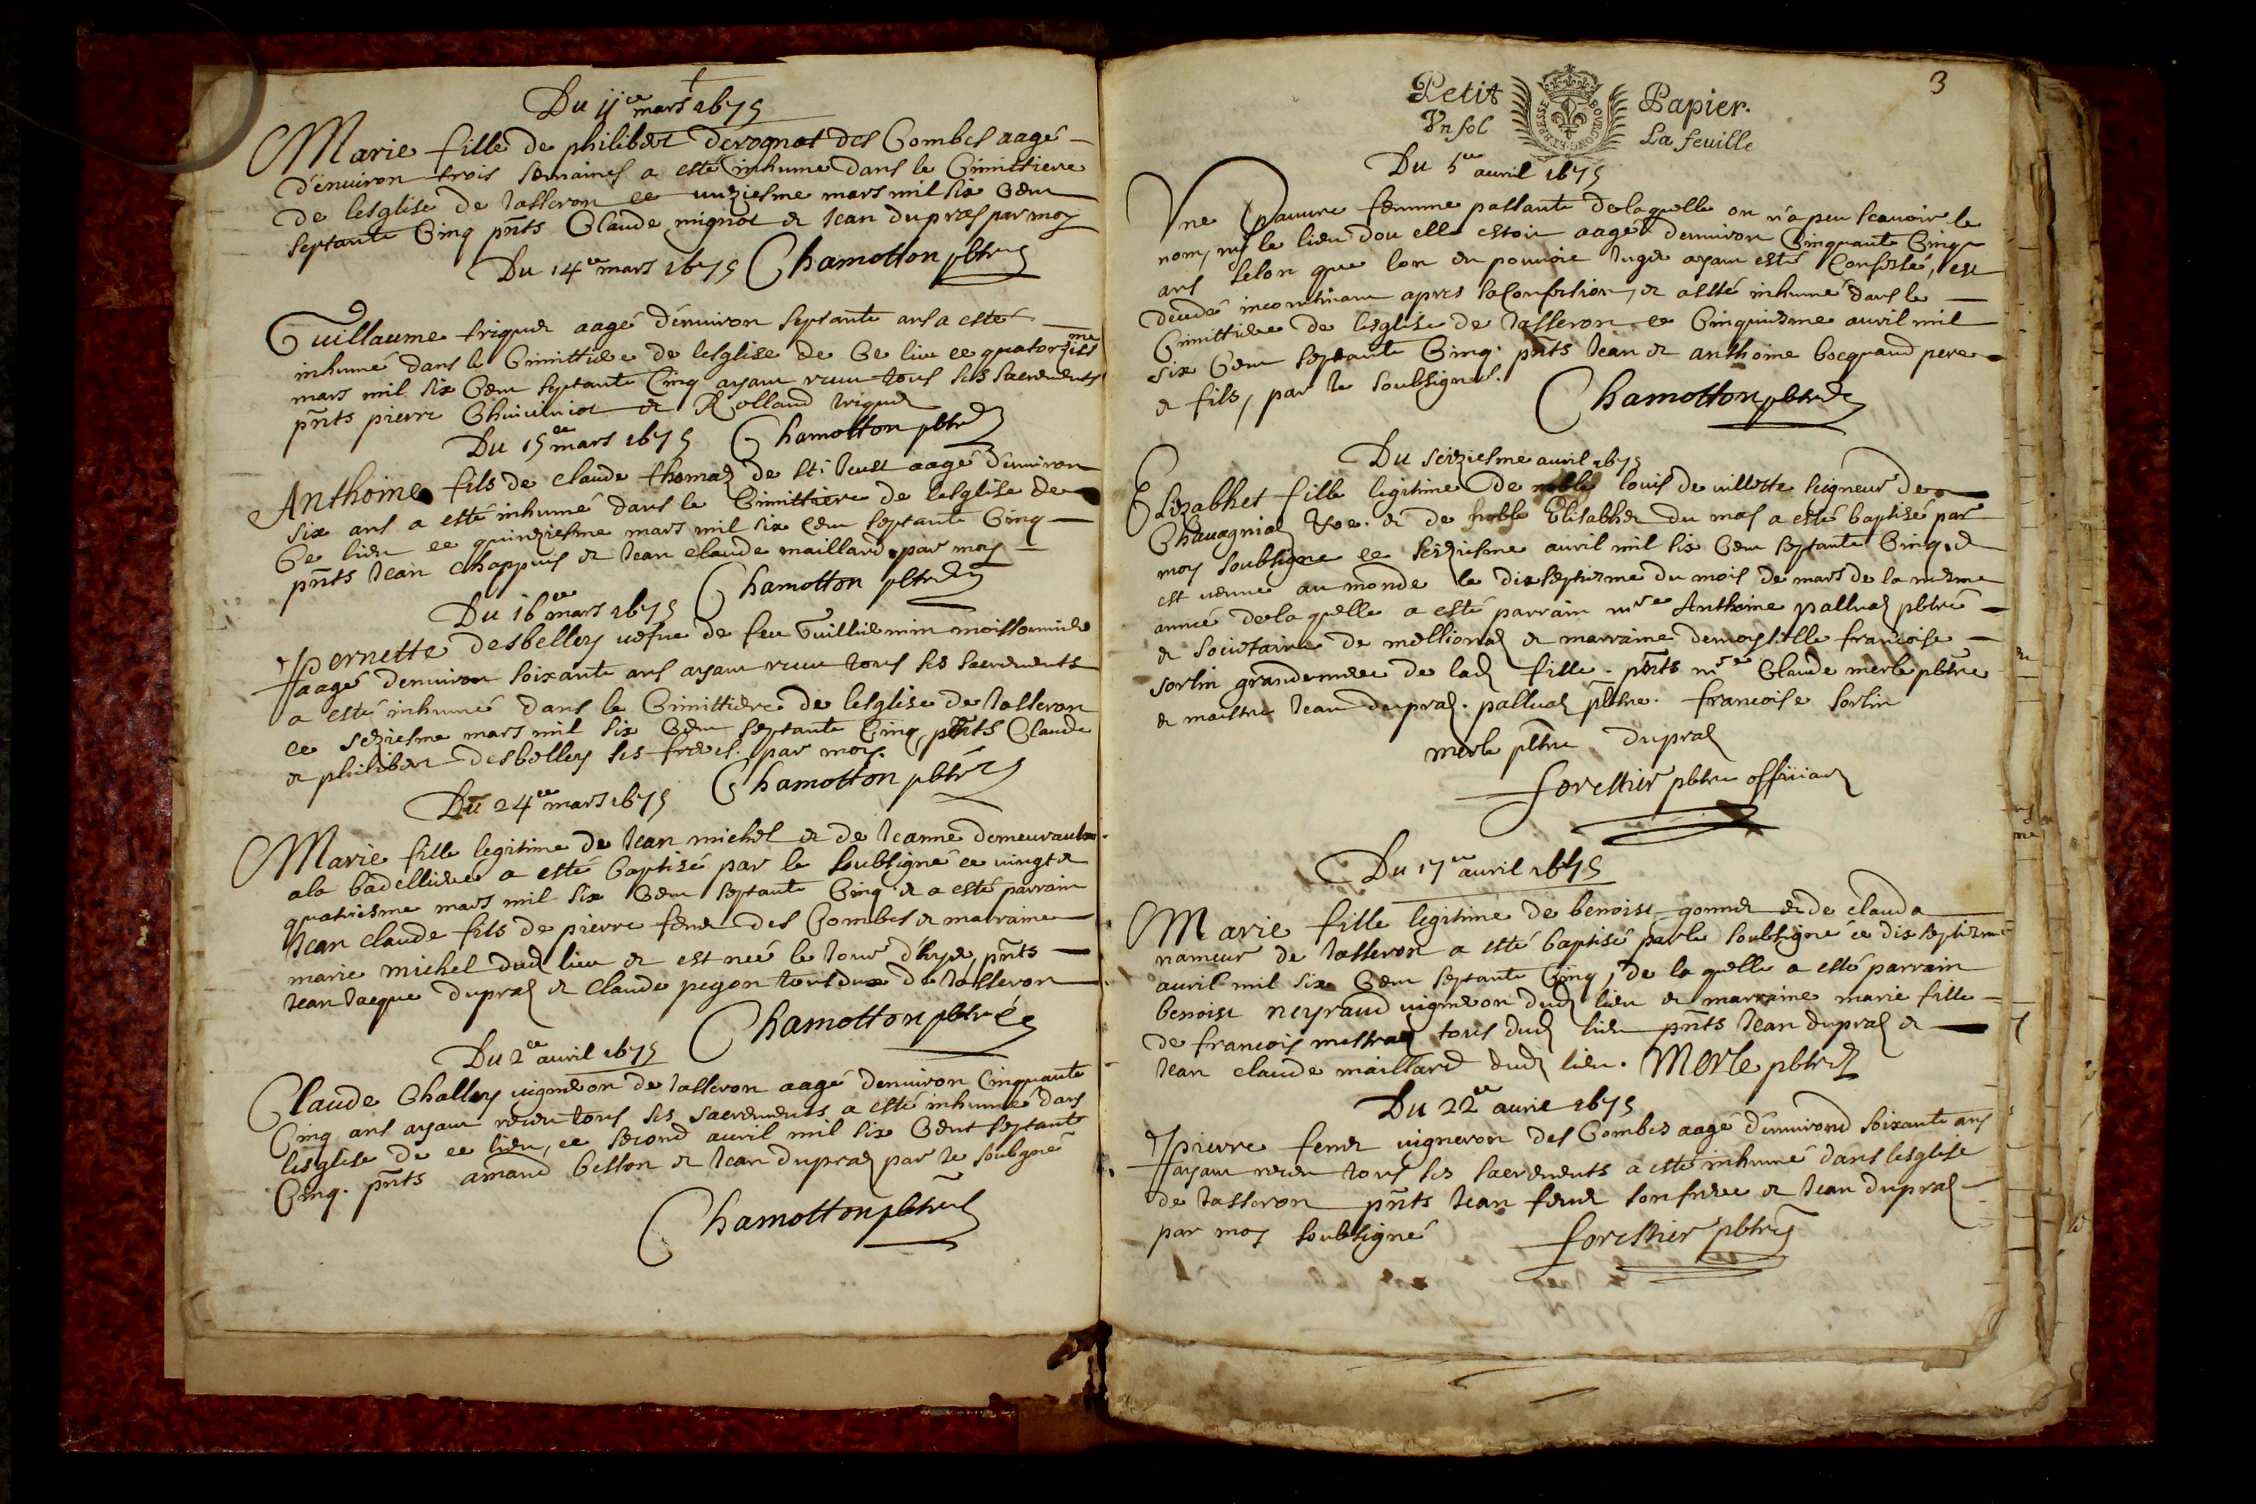 Du 11ce mars 1675
Marie fille de philibert derognat des Combes aagé
d'environ trois semaines a esté inhumé dans le Cimittiere
de lesglise de Jasseron ce unziesme mars mil six Cent
septante Cinq pnts Claude mignot et Jean dupras par moy
Du 14ce mars 1675 Chamotton pbtre
Guillaume triquet aagé d'environ septante ans a esté
inhumé dans le Cimittiere de lesglise de Ce lieu ce quatorziesme
mars mil six Cent septante Cinq ayant receu tous ses sacrements
pnts pierre et Rolland triquet
Du 15ce mars 1675 Chamotton pbtre
Anthoine fils de claude thomas de st Just aagé d'environ
six ans a esté inhumé dans le Cimittiere de lesglise de
Ce lieu ce quinziesme mars mil six Cent septante Cinq
pnts Jean chappuis et Jean claude maillard par moy
Du 16ce mars 1675 Chamotton pbtre
pernette desbelley vefve de feu Guilliemin moissonnier
aagé denviron soixante ans ayant receu tous ses sacrements
a esté inhumé dans le Cimittiere de lesglise de Jasseron
ce seziesme mars mil six Cent septante Cinq pnts Claude
et philibert desbelley ses freres. par moy
Du 24ce mars 1675 Chamotton pbtre
Marie fille legitime de Jean michel et de Jeanne demeurants
a la badelliere a esté baptisé par le soubsigné ce vingt et
quatriesme mars mil six Cent septante Cinq et a esté parrain
Jean claude fils de pierre feret des Combes et marraine
marie michel dud lieu et est née le Jour d'hyer pnts
Jean Jacque dupras et claude pegon tous deux de Jasseron
Chamotton pbtre
Du 2ce avril 1675
Claude Challey vigneron de Jasseron aagé denviron Cinquante
Cinq ans ayant receu tous ses sacrements a esté inhumé dans
lesglise de ce lieu, ce second avril mil six Cent septante
Cinq. pnts amand besson et Jean dupras par le soubsigné
Chamotton pbtre
3
Petit Papier.
Un sol La feuille
BRESSE BOURGONG ET
Du 5ce avril 1675
Une pauvre femme passante de laquelle on n'a peu scavoir le
nom, ny le lieu dou elle estoit aagé denviron Cinquante Cinq
ans selon que lon en pouvoit Juger ayant esté Confessé, est
decedé incontinant apres sa Confession, et a esté inhumé dans le
Cimittiere de lesglise de Jasseron ce Cinquiesme avril mil
six Cent septante Cinq. pnts Jean et anthoine bocquand pere
et fils, par le soubsigné.
Chamotton pbtre
Du seiziesme avril 1675
Elizabhet fille legitime de noble louis de villette seigneur de
Chavagnia &c. et de noble Elisabhet du mas a esté baptisé par
moy soubsigné ce seiziesme avril mil six Cent septante Cinq. et
est venue au monde le dixseptiesme du mois de mars de la mesme
année de la quelle a esté parrain mre Anthoine palluas pbtre
et societaire de mellionas et marraine demoyselle francoise
sorlin grandmere de lad fille. pnts mre Claude merle pbtre
et maistre Jean dupras. palluas pbtre. francoise sorlin
merle pbtre dupras
forestier pbtre officiant
Du 17ce avril 1675
Marie fille legitime de benoist gonnet et de clauda
nameur de Jasseron a esté baptisé par le soubsigné ce dix septiesme
avril mil six Cent septante Cinq, de la quelle a esté parrain
benoist neyraud vigneron dud lieu et marraine marie fille
de francois mestras tous dud lieu pnts Jean dupras et
Jean claude maillard dud lieu. Merle pbtre
Du 22ce avril 1675
pierre feret vigneron des Combes aagé d'environ soixante ans
ayant receu tous ses sacrements a esté inhumé dans lesglise
de Jasseron pnts Jean feret son frere et Jean dupras
par moy soubsigné forestier pbtre